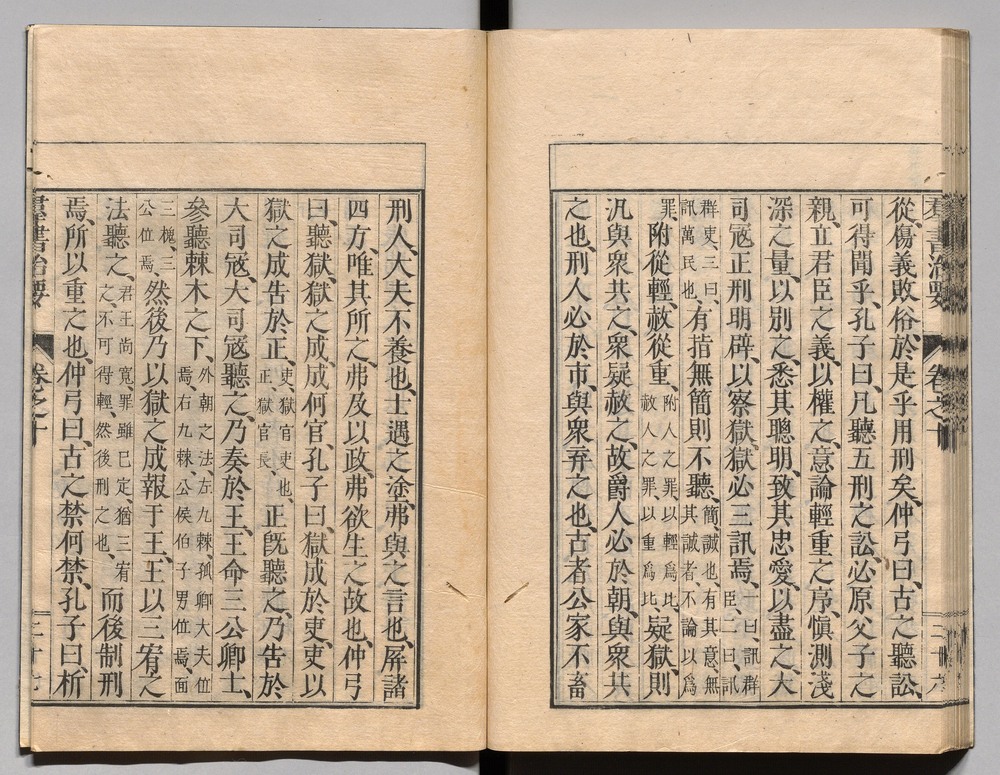 羣書治要 卷之十 二十六
從、傷義敗俗、於是乎用刑矣、仲弓曰、古之聽訟、
可得聞乎、孔子曰、凡聽五刑之訟、必原父子之
親、立君臣之義、以權之、意論輕重之序、愼測淺
深之量、以別之、悉其聰明、致其忠愛、以盡之、大
司寇正刑明辟、以察獄、獄必三訊焉、一曰、訊群臣、二曰、訊
群吏、三曰、訊萬民也、有指無簡則不聽、簡、誠也、有其意、無其誠者、不論以爲
罪、附從輕、赦從重、附人之罪、以輕爲比、赦人之罪、以重爲比、疑獄、則
汎與衆共之、衆疑赦之、故爵人必於朝、與衆共
之也、刑人必於市、與衆弃之也、古者公家不畜
刑人、大夫不養也、士遇之塗、弗與之言也、屏諸
四方、唯其所之、弗及以政、弗欲生之故也、仲弓
曰、聽獄、獄之成、成何官、孔子曰、獄成於吏、吏以
獄之成告於正、吏、獄官吏也、正、獄官長、正旣聽之、乃告於
大司寇、大司寇聽之、乃奏於王、王命三公卿士、
參聽棘木之下、外朝之法、左九棘、孤卿大夫位焉、右九棘、公侯伯子男位焉、面
三槐、三公位焉、然後乃以獄之成報于王、王以三宥之
法聽之、君王尚寬、罪雖已定、猶三宥之、不可得輕、然後刑之也、而後制刑
焉、所以重之也、仲弓曰、古之禁何禁、孔子曰、析
羣書治要 卷之十 二十七